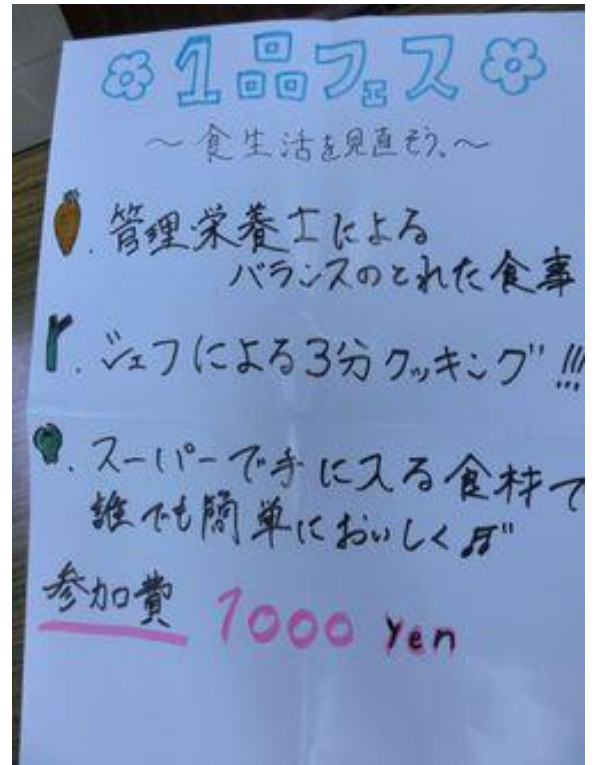 1品フェス
～食生活を見直そう。～
. 管理栄養士による
バランスのとれた食事
. シェフによる3分クッキング!!!
. スーパーで手に入る食材で
誰でも簡単においしく♬
参加費 1000 yen